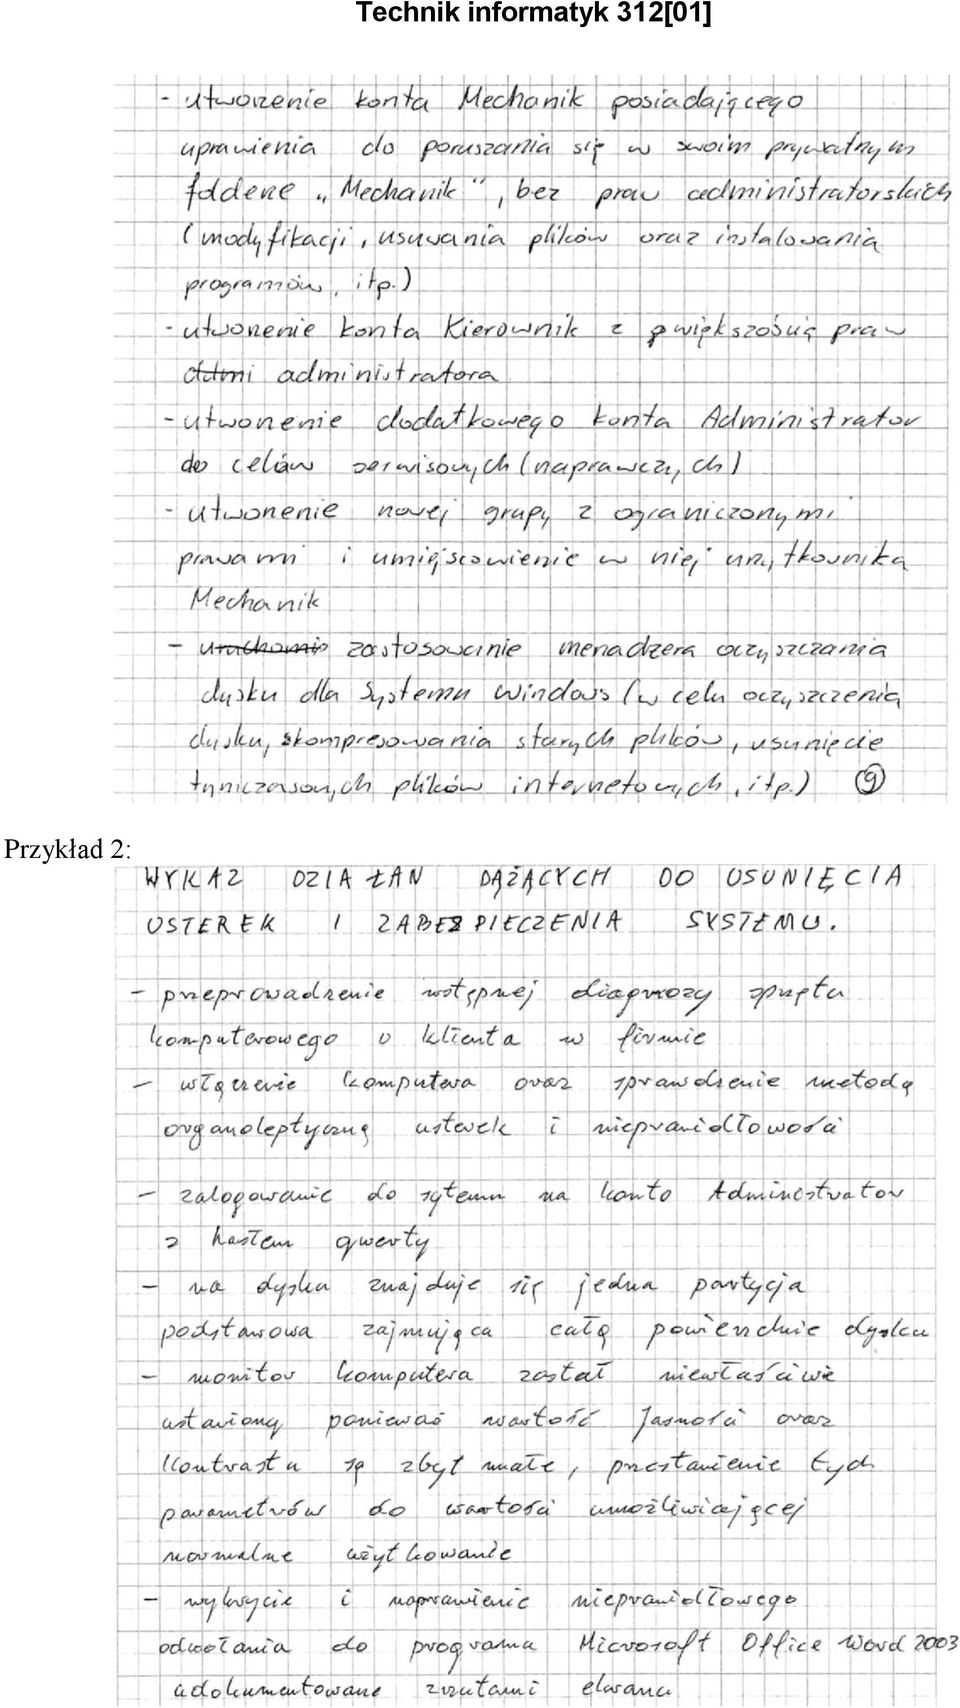 Technik informatyk 312[01]
- utworzenie konta Mechanik posiadającego
uprawienia do poruszania się w swoim prywatnym
folderze „Mechanik", bez praw administratorskich
(modyfikacji, usuwania plików oraz instalowania
programów, itp.)
- utworzenie konta Kierownik z większością praw
administratora
- utworzenie dodatkowego konta Administrator
do celów serwisowych (naprawczych)
- utworzenie nowej grupy z ograniczonymi
prawami i umiejscowienie w niej użytkownika
Mechanik
- uruchomie zastosowanie menadżera oczyszczania
dysku dla Systemu Windows (w celu oczyszczenia
dysku, skompresowania starych plików, usunięcie
tymczasowych plików internetowych, itp.) (9)
Przykład 2:
WYKAZ DZIAŁAŃ DĄŻĄCYCH DO USUNIĘCIA
USTEREK I ZABEZPIECZENIA SYSTEMU.
- przeprowadzenie wstępnej diagnozy sprzętu
komputerowego u klienta w firmie
- włączenie komputera oraz sprawdzenie metodą
organoleptyczną usterek i nieprawidłowości
- zalogowanie do sytemu na konto Administrator
z hasłem qwerty
- na dysku znajduje się jedna partycja
podstawowa zajmująca całą powierzchnie dysku
- monitor komputera został niewłaściwie
ustawiony ponieważ wartość Jasności oraz
kontrastu są zbyt małe, przestawienie tych
parametrów do wartości umożliwiającej
normalne użytkowanie
- wykrycie i naprawienie nieprawidłowego
odwołania do programu Microsoft Office Word 2003
udokumentowane zrzutami ekranu